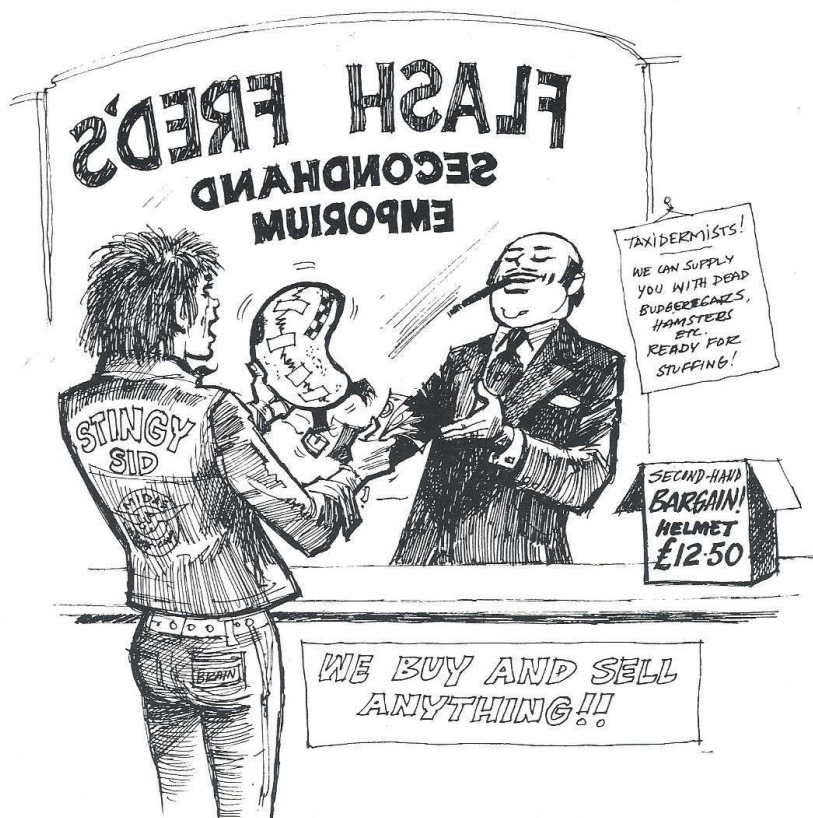 FLASH FRED'S
SECONDHAND
EMPORIUM
TAXIDERMISTS!
WE CAN SUPPLY
YOU WITH DEAD
BUDGEREGARS,
HAMSTERS
ETC.
READY FOR
STUFFING!
STINGY
SID
MIDAS
SECOND-HAND
BARGAIN!
HELMET
£12·50
BRAIN
WE BUY AND SELL
ANYTHING!!